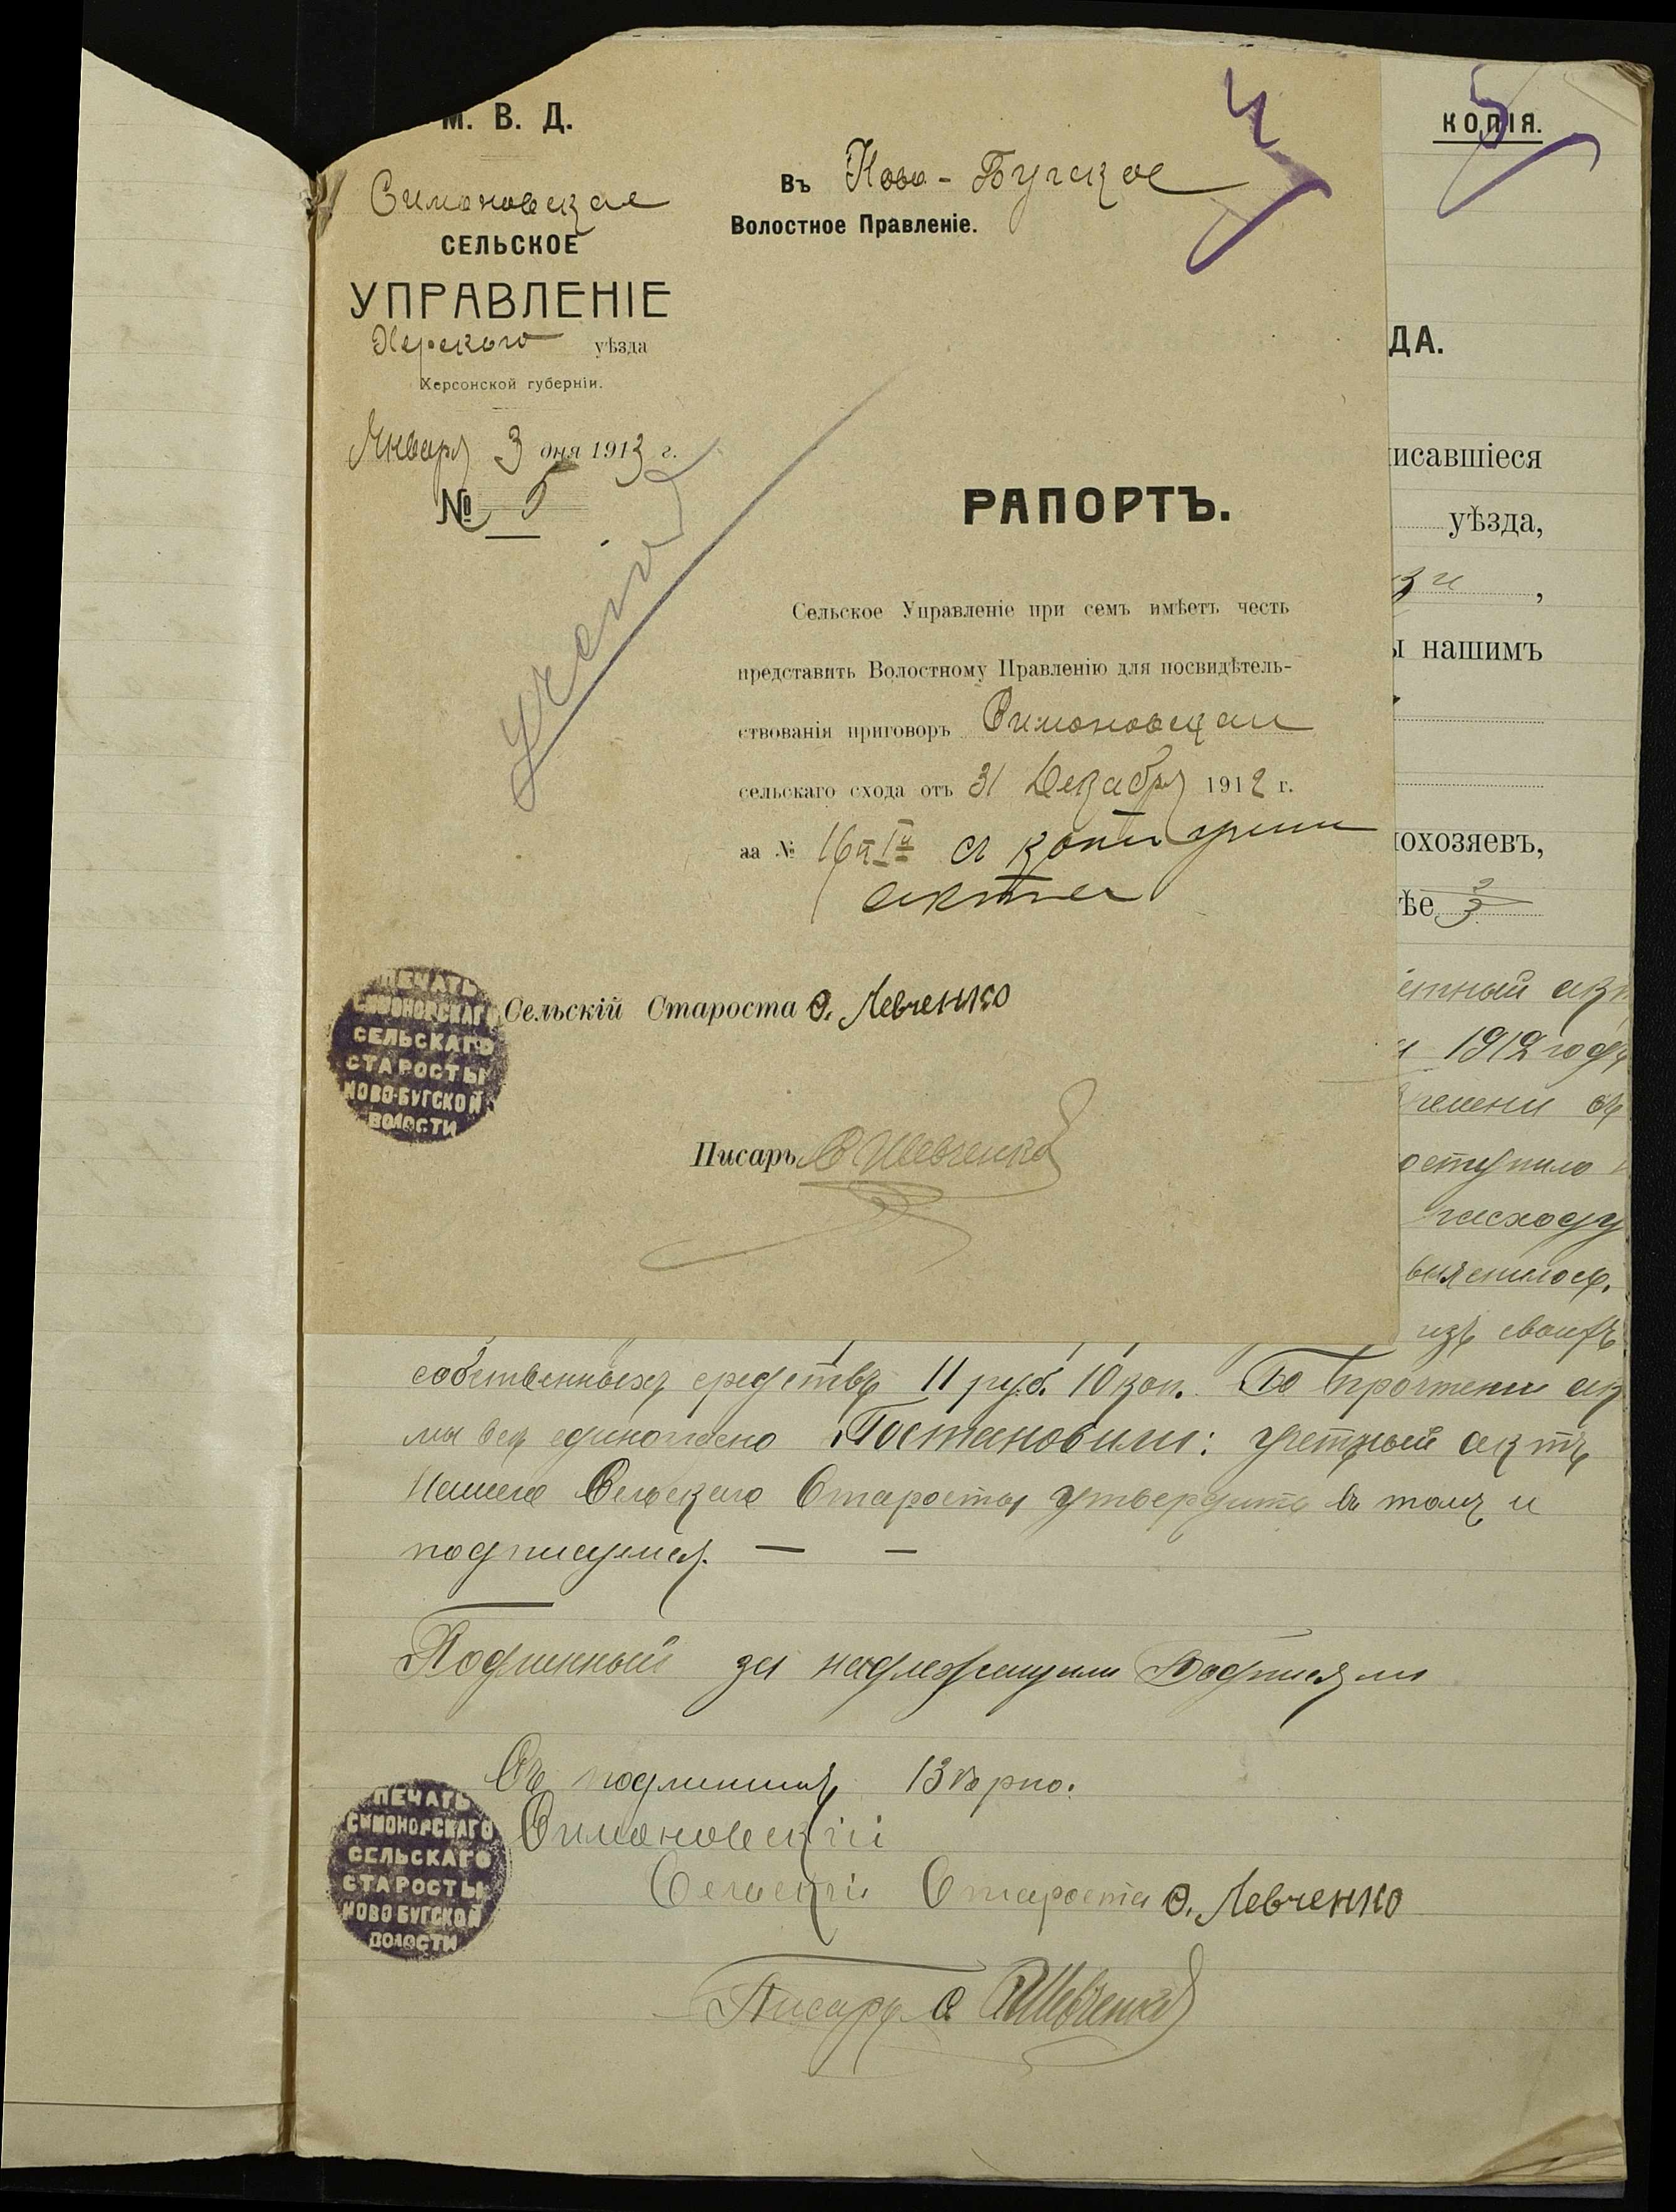 М. В. Д.
Симоновское
СЕЛЬСКОЕ
УПРАВЛЕНІЕ
Херского уѣзда
Херсонской губерніи.
Января 3 дня 1913 г.
№ 5
4
Въ Ново-Бугское
Волостное Правленіе.
РАПОРТЪ.
Сельское Управленіе при семъ имѣетъ честь
представить Волостному Правленію для посвидѣтель-
ствованія приговоръ Симоновскаи
сельскаго схода отъ 31 Декабря 1912 г.
за № 16 съ копи
акта
Сельскій Староста Ѳ. Левченко
ПЕЧАТЬ
СИМОНОРСКАГО
СЕЛЬСКАГО
СТАРОСТЫ
НОВО-БУГСКОЙ
ВОЛОСТИ
Писарь Шевченко
5
КОПІЯ.
ДА.
исавшіеся
уѣзда,
ы нашимъ
охозяевъ,
ѣе 2/3
етный ак
1912 году
времени
оступило
расходу
выяснилось,
изъ своихъ
собственныхъ средствъ 11 руб. 10 коп. По прочтени ак
мы все единогласно Постановили: учетный актъ
Нашего Сельскаго Старосты утвердить въ томъ и
подписуемся. — —
Подлинный за надлежащими Подписями
Съ подлиннымъ Вѣрно:
Симоновскій
Сельскій Староста Ѳ. Левченко
ПЕЧАТЬ
СИМОНОРСКАГО
СЕЛЬСКАГО
СТАРОСТЫ
НОВО БУГСКОЙ
ВОЛОСТИ
Писарь Шевченко